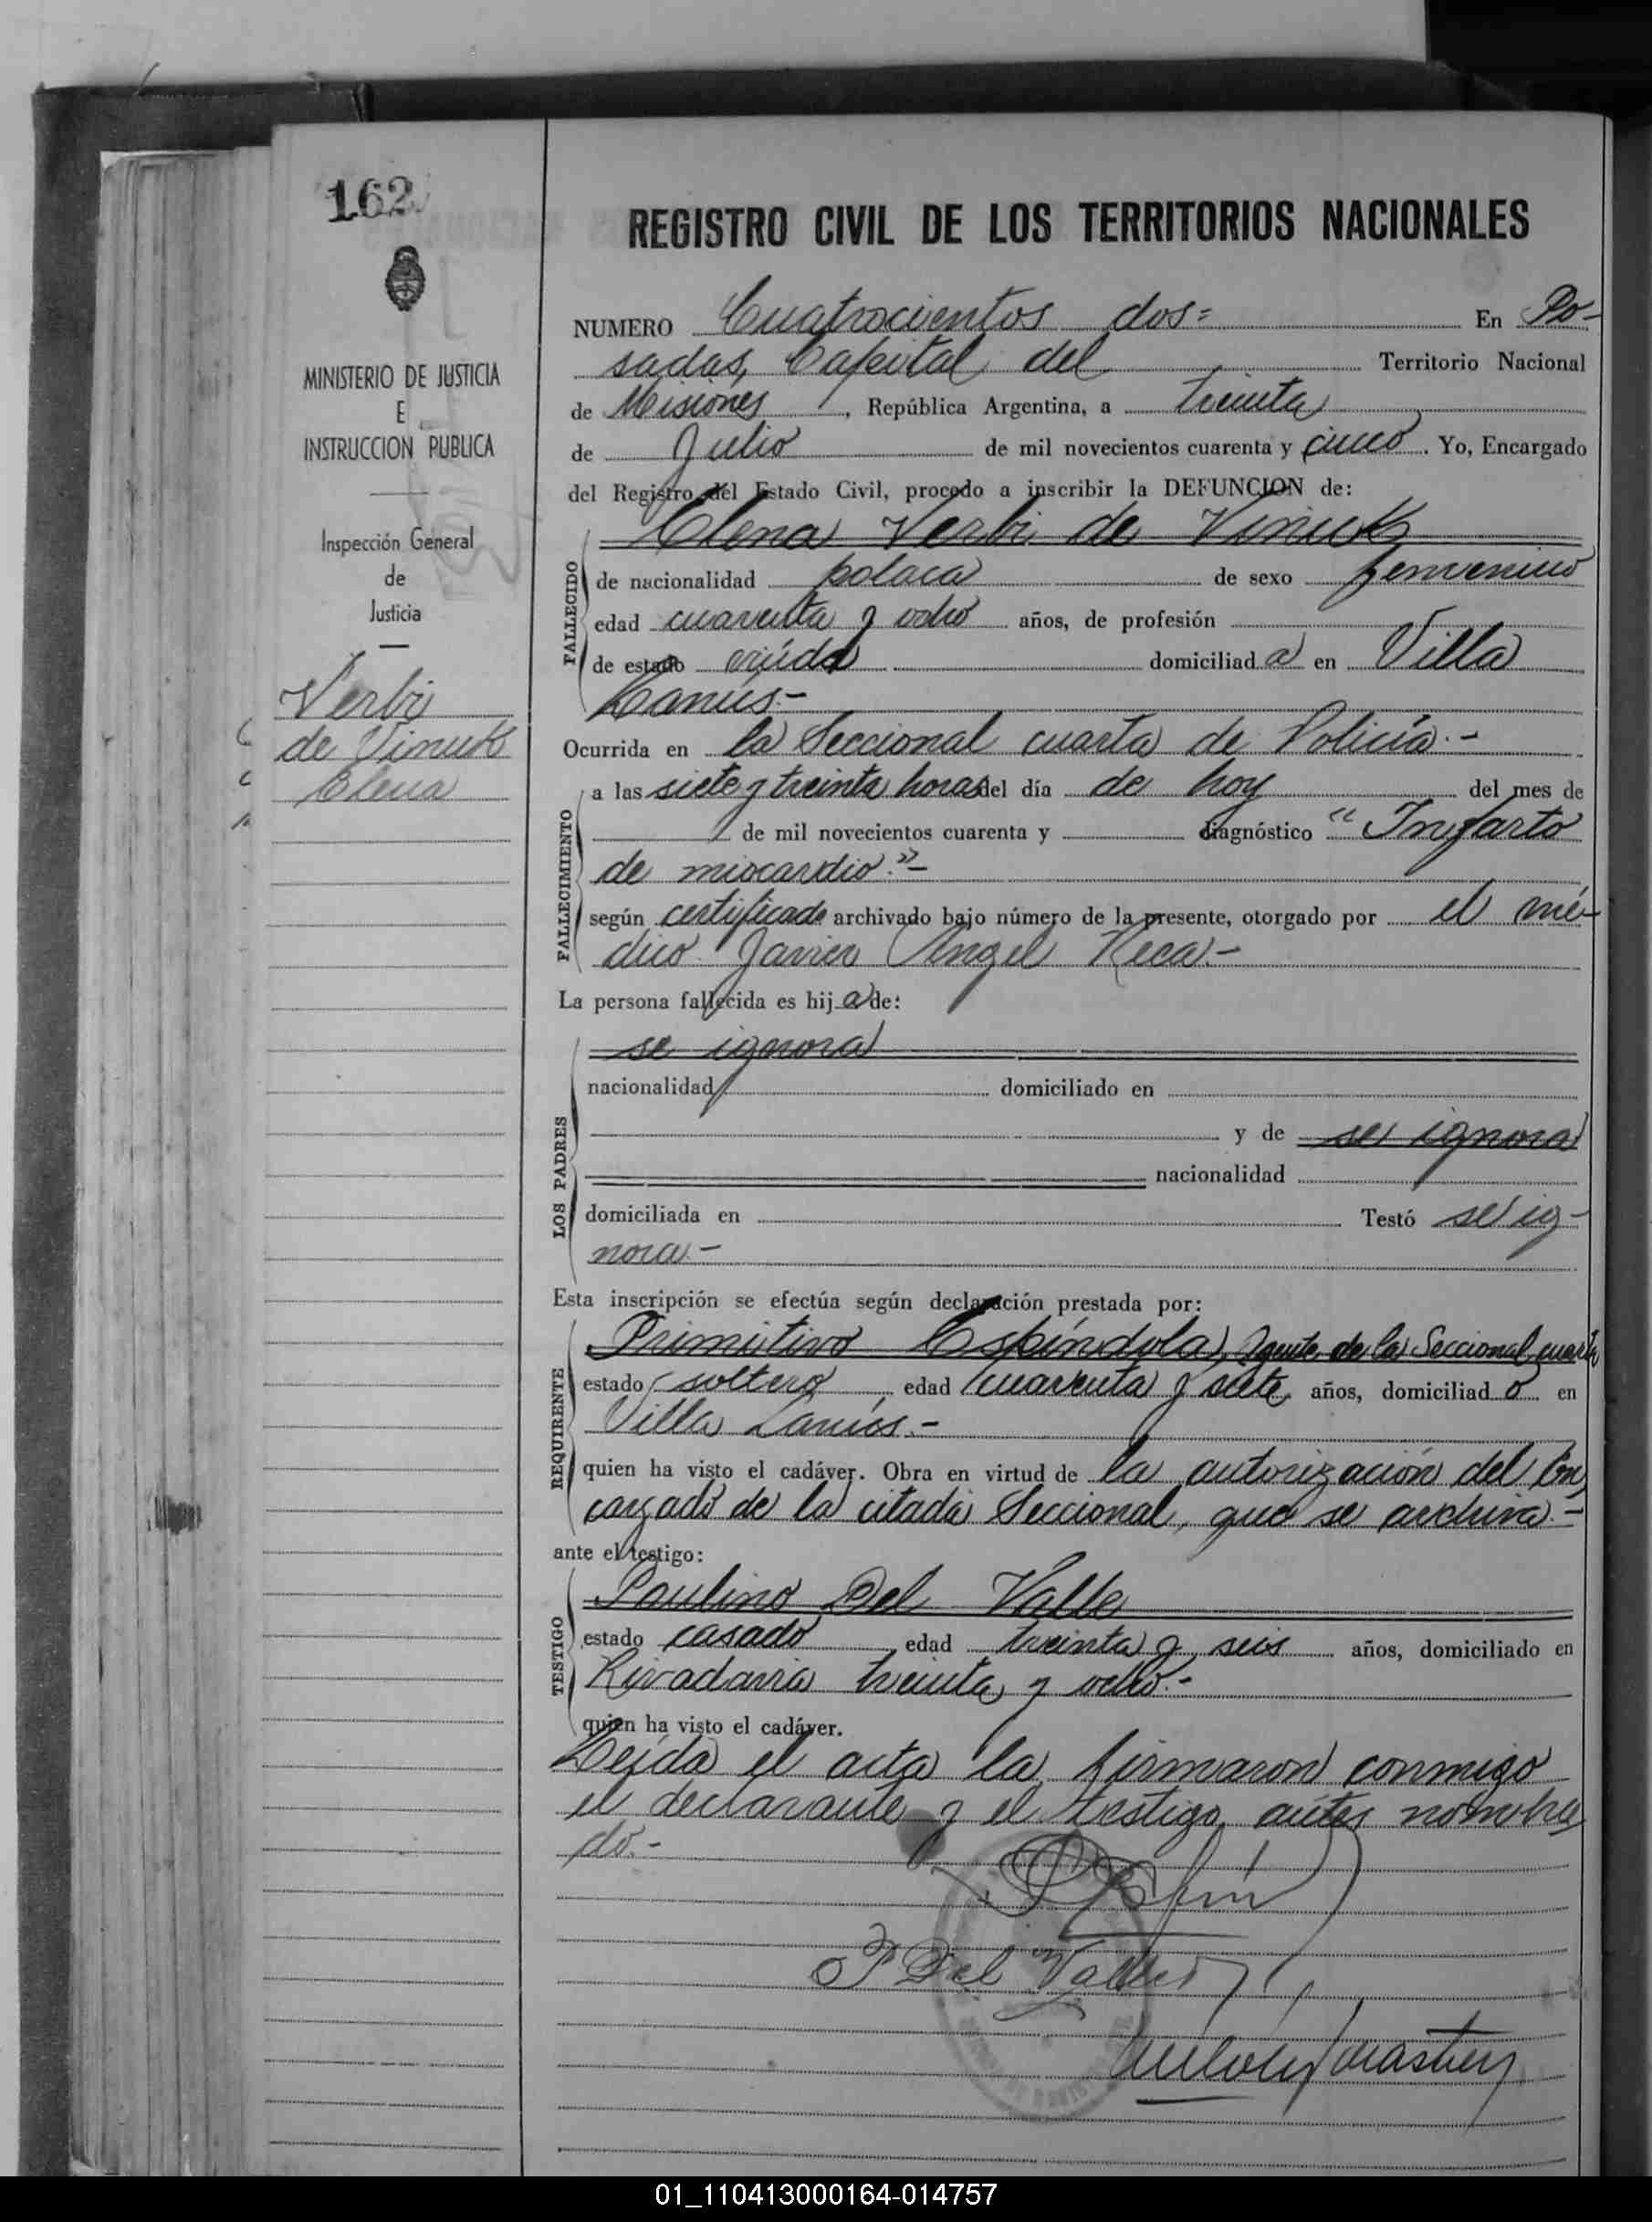 162
MINISTERIO DE JUSTICIA
E
INSTRUCCION PUBLICA
Inspección General
de
Justicia
Verbi
de Vinuk
Elena
REGISTRO CIVIL DE LOS TERRITORIOS NACIONALES
NUMERO Cuatrocientos dos= En Po-
sadas, Capital del Territorio Nacional
de Misiones, República Argentina, a treinta
de Julio de mil novecientos cuarenta y cinco. Yo, Encargado
del Registro del Estado Civil, procedo a inscribir la DEFUNCION de:
Elena Verbi de Vinuk
FALLECIDO
de nacionalidad polaca de sexo femenino
edad cuarenta y ocho años, de profesión
de estado viúda domiciliada en Villa
Lanús.-
Ocurrida en la Seccional cuarta de Policía.-
FALLECIMIENTO
a las siete y treinta horas del día de hoy del mes de
de mil novecientos cuarenta y diagnóstico "Infarto
de miocardio".-
según certificado archivado bajo número de la presente, otorgado por el mé-
dico Javier Angel Reca.-
La persona fallecida es hija de:
LOS PADRES
se ignora
nacionalidad domiciliado en
y de se ignora
nacionalidad
domiciliada en Testó se ig-
nora.-
Esta inscripción se efectúa según declaración prestada por:
REQUIRENTE
Primitivo Espíndola, Agente de la Seccional cuarta
estado soltero, edad cuarenta y siete años, domiciliado en
Villa Lanús.-
quien ha visto el cadáver. Obra en virtud de la autorización del En
cargado de la citada Seccional, que se archiva.-
ante el testigo:
TESTIGO
Paulino Del Valle
estado casado, edad treinta y seis años, domiciliado en
Rivadavia treinta y ocho.-
quien ha visto el cadáver.
Leída el acta la firmaron conmigo
el declarante y el testigo antes nombra
do.-
P Del Valle
01_110413000164-014757